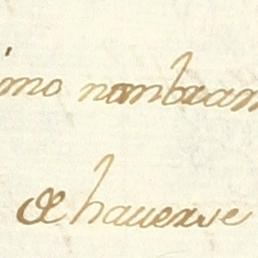 imo nombram
de hauerse